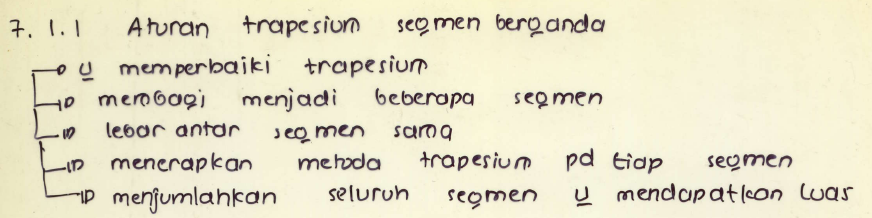 7.1.1 Aturan trapesium segmen berganda
u memperbaiki trapesium
membagi menjadi beberapa segmen
lebar antar segmen sama
menerapkan metoda trapesium pd tiap segmen
menjumlahkan seluruh segmen u mendapatkan luas